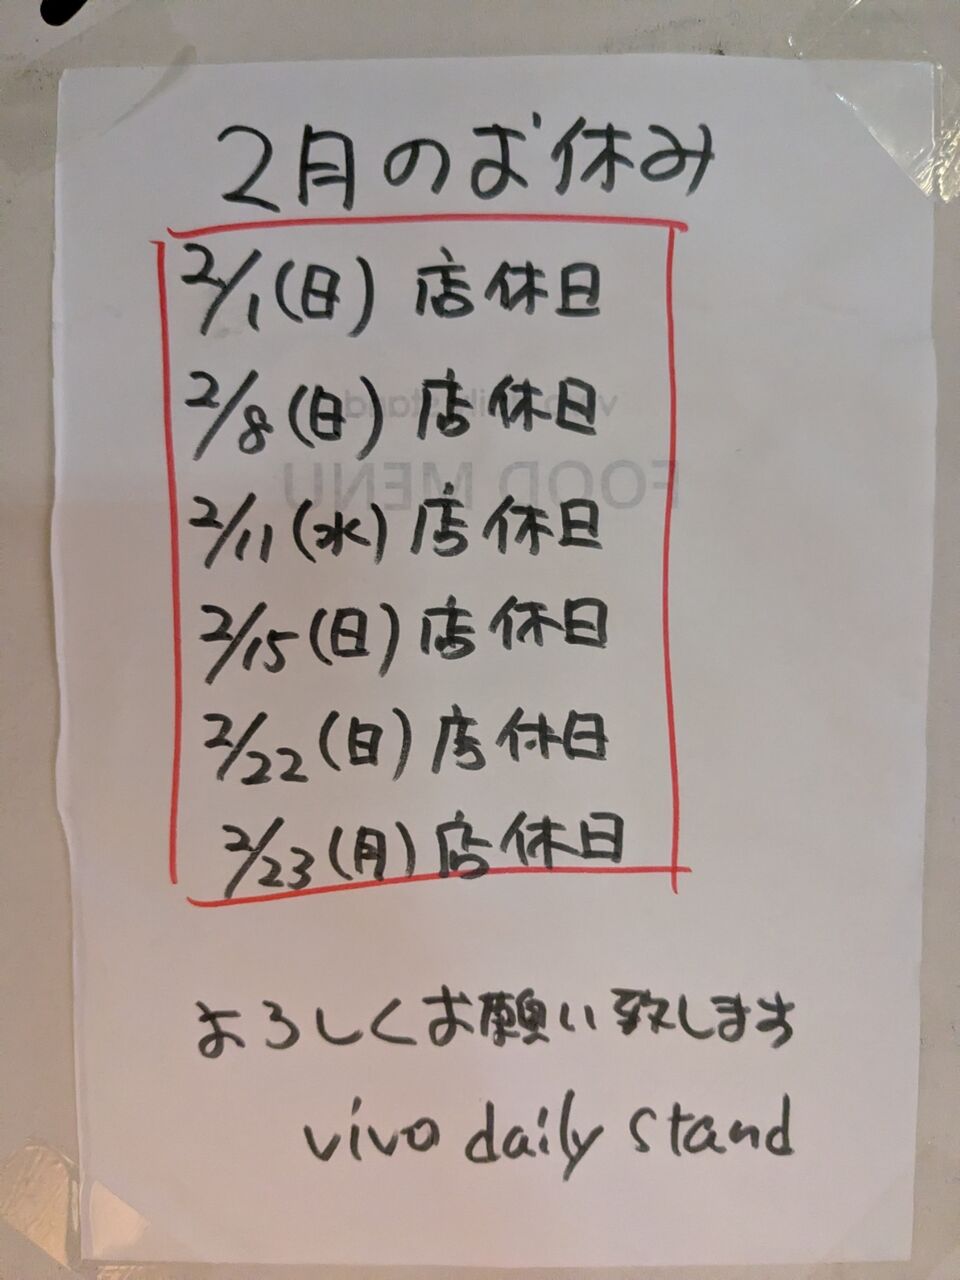 2月のお休み
2/1(日) 店休日
2/8(日) 店休日
vivo daily stand
FOOD MENU
2/11(水) 店休日
2/15(日) 店休日
2/22(日) 店休日
2/23(月) 店休日
よろしくお願い致します
vivo daily stand